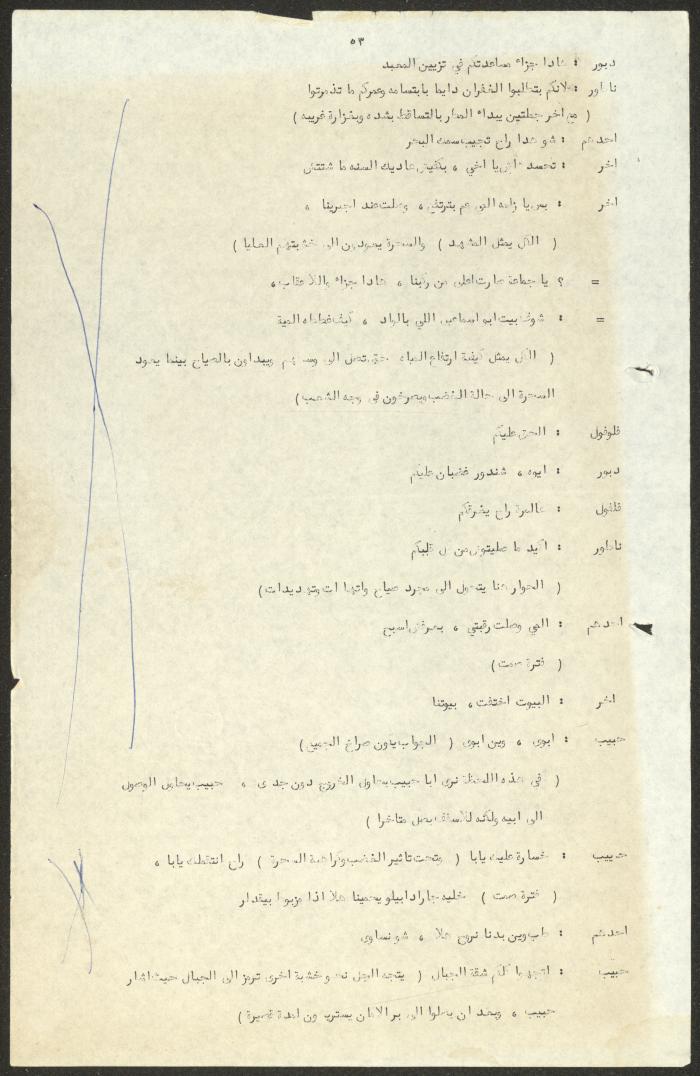 ٥٣
دبور : هادا جزاء مساعدتكم في تزيين المعبد
ناطور : علانكم بتطلبوا الغفران دايما بابتسامه وعمركم ما تذمرتوا
( مع اخر جملتين يبداء المطر بالتساقط بشده وبغزارة غريبه )
احدهم : شو هدا راح تجيب سمك البحر
اخر : تحسد يا اخي ، بكفيش هاديك السنه ما شتتش
اخر : بس يا زلمه الي عم بترتفع ، وصلت عند اجرينا ،
( الكل يمثل المشهد ) والسحرة يعودون الى خشبتهم العليا )
= ؟ يا جماعة صارت اعلى من ركبنا ، هادا جزاء والا عقاب ،
= : شوف بيت ابو اسماعيل اللي بالواد ، كيف غطاطه المية
( الكل يمثل كيفية ارتفاع المياه حتى تصل الى وسطهم ويبداون بالصياح بينما يعود
السحرة الى حالة الغضب ويصرخون في وجه الشعب )
فلوفول : الحق عليكم
دبور : ايوه ، شندور غضبان عليكم
فلفول : عالمرة راح يغرقكم
ناطور : اكيد ما صليتوش من كل قلبكم
( الحوار هنا يتحول الى مجرد صياح واتهامات وتهديدات )
احدهم : المي وصلت رقبتي ، بعرفش اسبح
( فترة صمت )
اخر : البيوت اختفت ، بيوتنا
حبيب : ابوي ، وين ابوي ( الجواب يكون صراخ الجميع )
( في هذه اللحظة نرى ابا حبيب يحاول الخروج دون جدوى ، حبيب يحاول الوصول
الى ابيه ولكنه للاسف يصل متاخرا )
حبيب : خسارة عليك يابا ( وتحت تاثير الغضب وكراهية السحرة ) راح انتقملك يابا ،
( فترة صمت ) خليه جارادابيلو يحمينا هلا اذا مزبوط بيقدار
احدهم : طب وين بدنا نروح هلا ، شو نساوي
حبيب : اتجهوا كلكم شقة الجبال ( يتجه الكل نحو خشبة اخرى ترمز الى الجبال حيث اشار
حبيب ، وبعد ان يصلوا الى بر الامان يستريحون لمدة قصيرة )